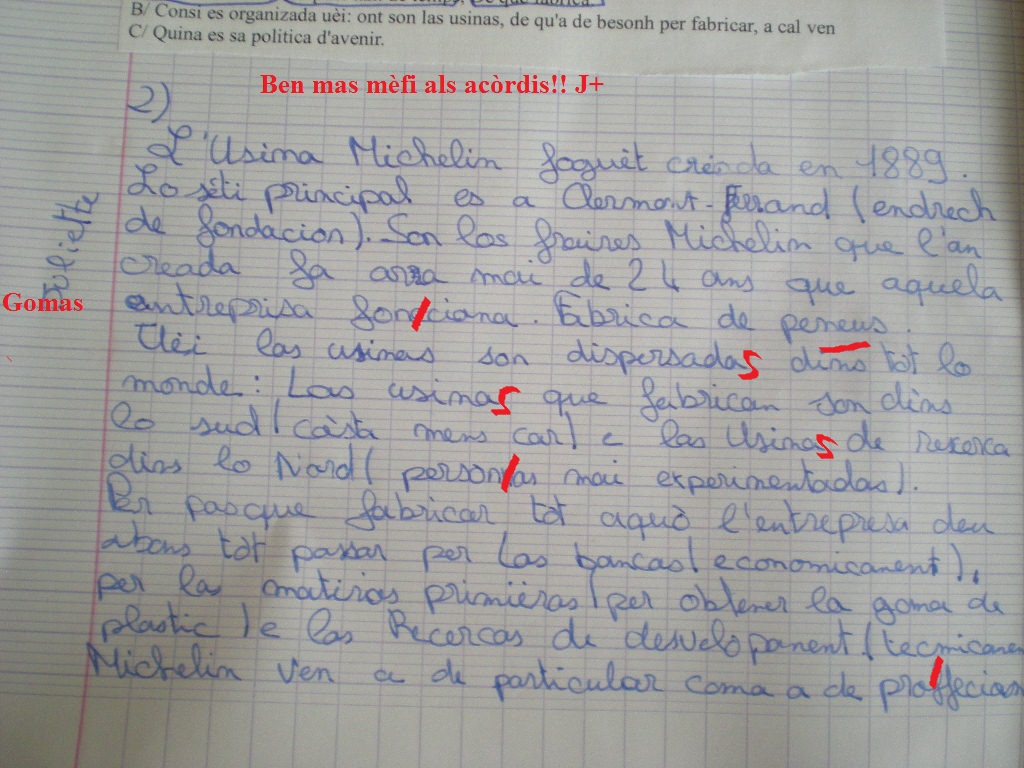 B/ Consi es organizada uèi: ont son las usinas, de qu'a de besonh per fabricar, a cal ven
C/ Quina es sa politica d'avenir.
Ben mas mèfi als acòrdis!! J+
2)
L'Usina Michelin foguèt creada en 1889.
Lo sèti principal es a Clermont-Ferrand (endrech
de fondacion). Son los fraires Michelin que l'an
creada fa arra mai de 24 ans que aquela
Gomas
entreprisa fonciona. Fabrica de peneus.
Uèi las usinas son dispersadas dins tot lo
monde: Las usinas que fabrican son dins
lo sud (còsta mens car) e las Usinas de recerca
dins lo Nord ( personas mai experimentadas).
Er pasque fabricar tòt aquò l'entrepresa deu
abans tòt passar per las bancas (economicanent),
per las matiras primièras (per obtener la goma de
plastic) e las Recercas de desvelopanent (tecnicanen
Michelin ven a de particular coma a de proffecian